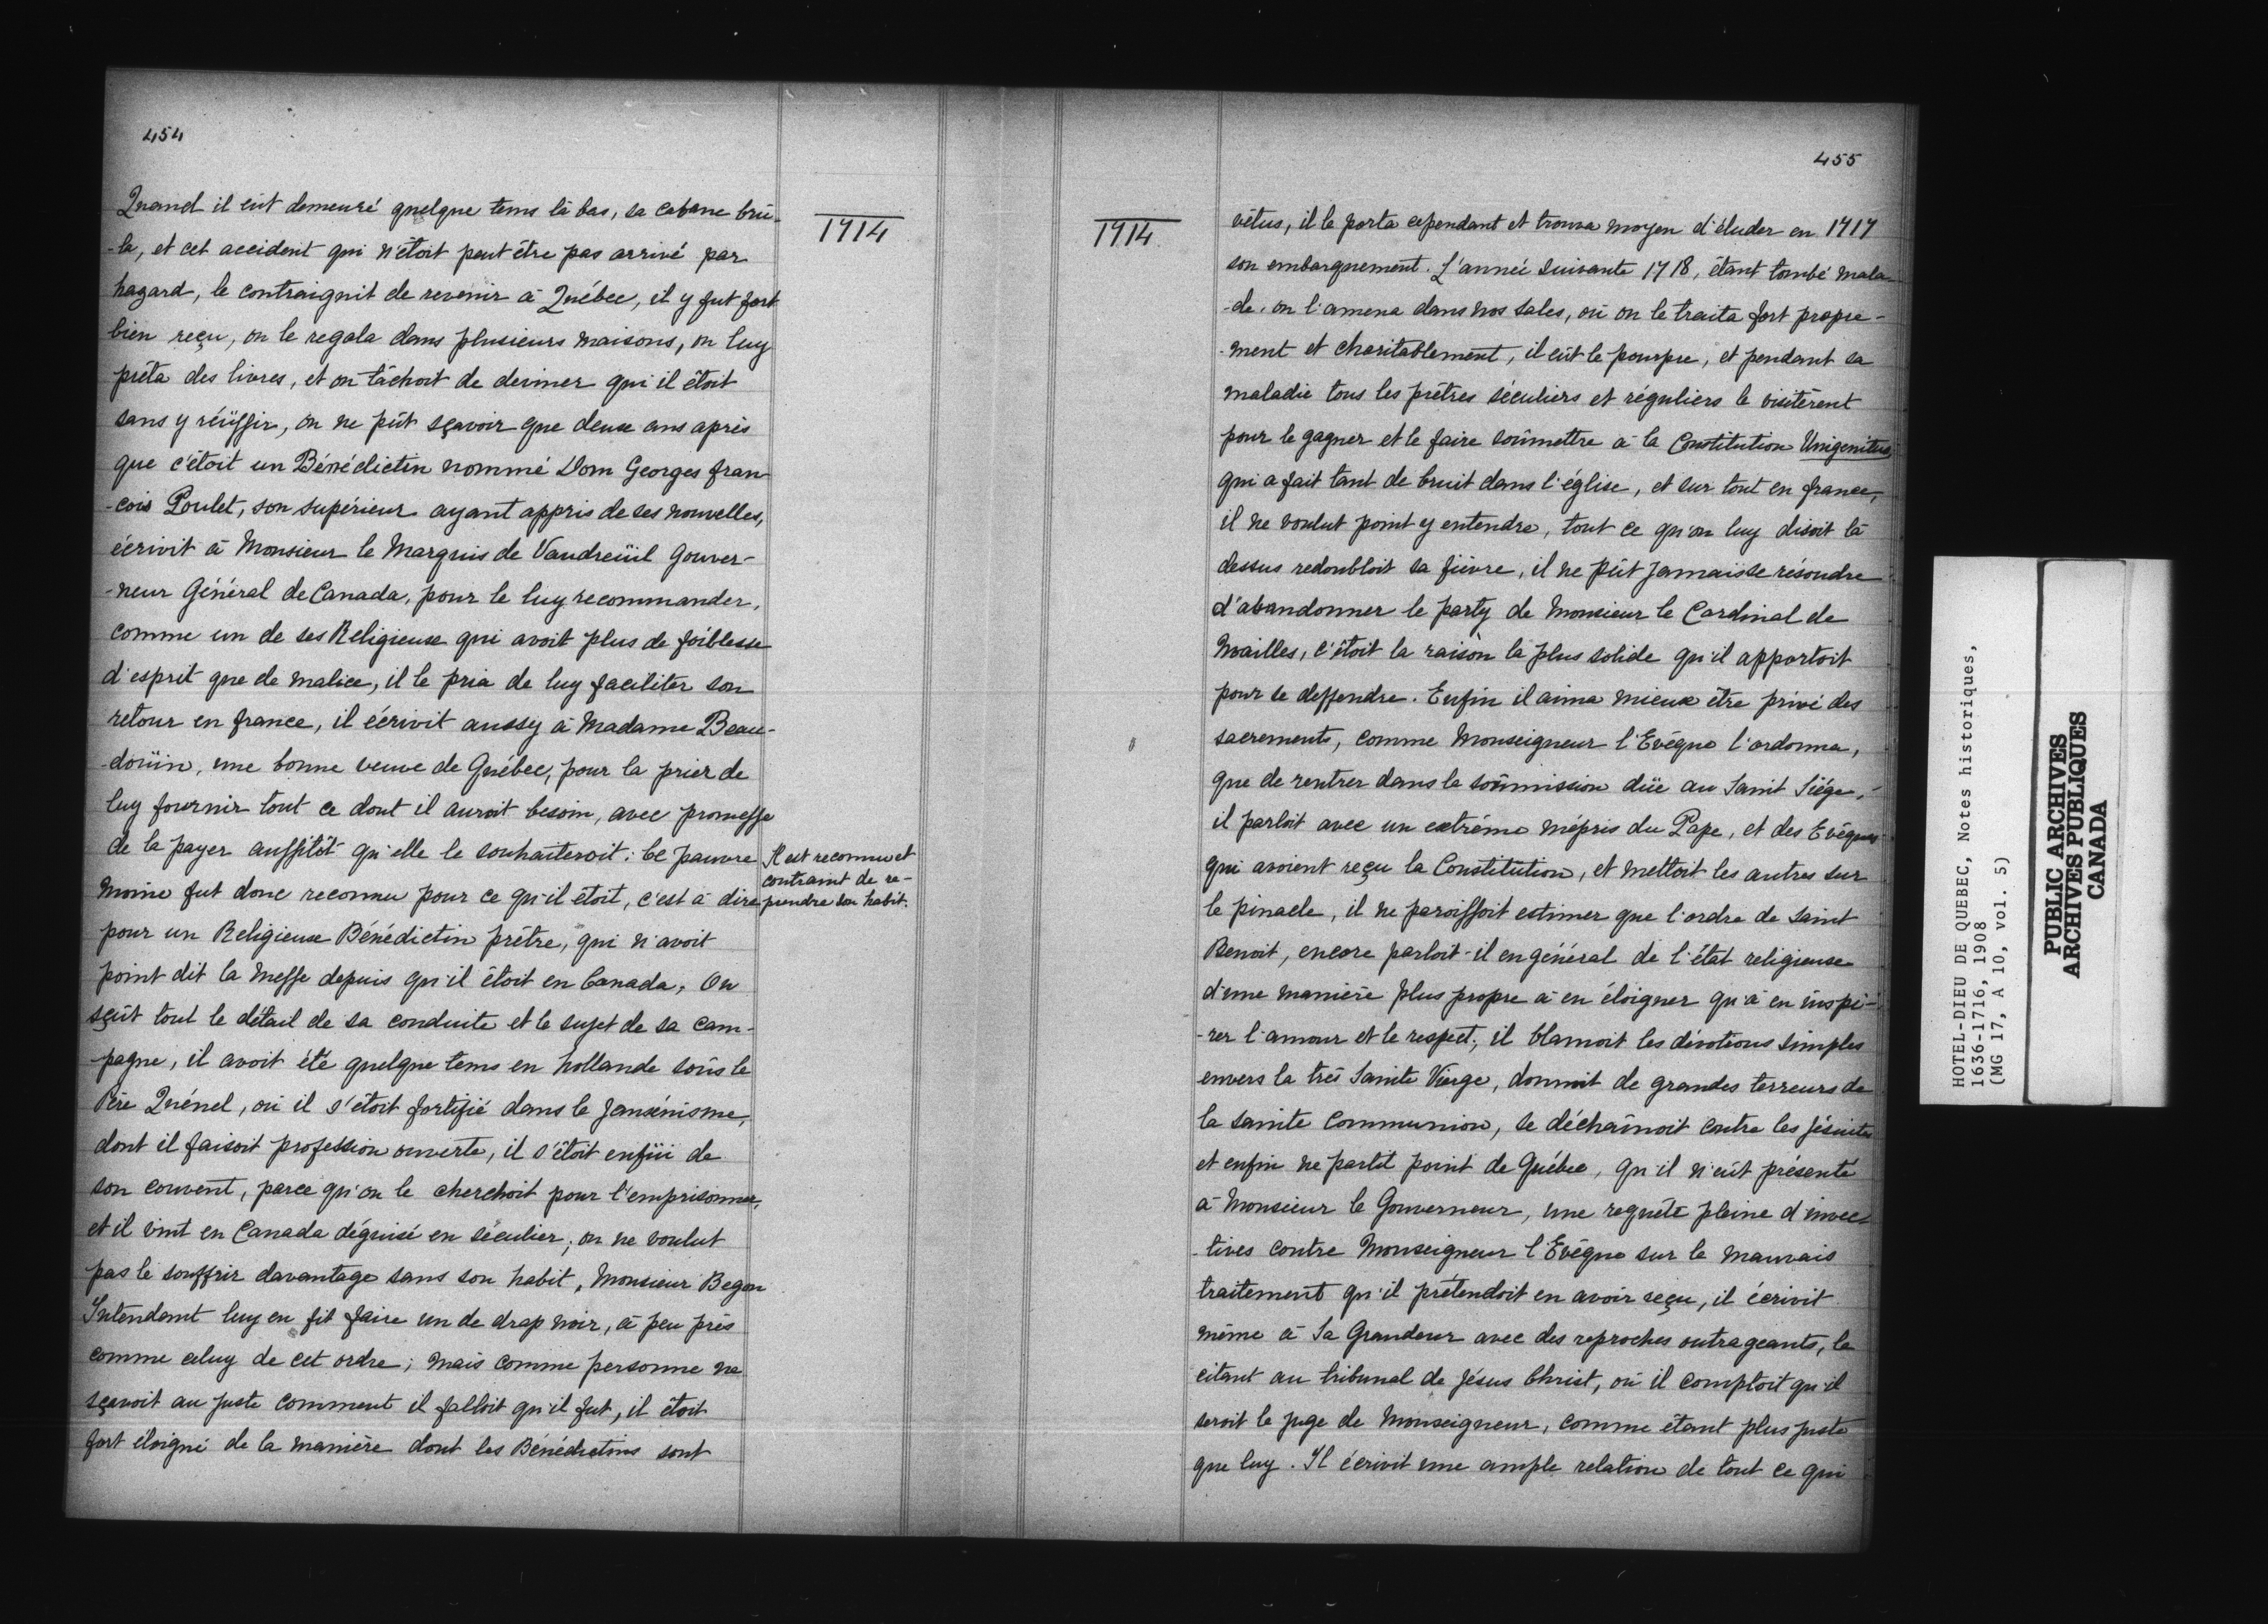 454
Quand il eût demeuré quelque tems là bas, sa cabane brû-
-la, et cet accident qui n'étoit peut être pas arrivé par
hazard, le contraignit de revenir à Québec, il y fut fort
bien reçu, on le regala dans plusieurs maisons, on luy
prêta des livres, et on tâchoit de deviner qui il étoit
sans y réüssir, on ne pût sçavoir que deux ans après
que c'étoit un Bénédictin nommé Dom Georges fran-
-cois Poulet, son supérieur ayant appris de ses nouvelles,
écrivit à Monsieur le Marquis de Vaudreüil Gouver-
-neur Général de Canada, pour le luy recommander,
comme un de ses Religieux qui avoit plus de foiblesse
d'esprit que de malice, il le pria de luy faciliter son
retour en france, il écrivit aussy à Madame Beau-
-doüin, une bonne veuve de Québec, pour la prier de
luy fournir tout ce dont il auroit besoin, avec promesse
de la payer aussitôt qu'elle le souhaiteroit: ce pauvre
moine fut donc reconnu pour ce qu'il étoit, c'est à dire
pour un Religieux Bénédictin prêtre, qui n'avoit
point dit la Messe depuis qu'il étoit en Canada, On
sçût tout le détail de sa conduite et le sujet de sa cam-
-pagne, il avoit été quelque tems en hollande soûs le
Père Quénel, où il s'étoit fortifié dans le Jansénisme,
dont il faisoit profession ouverte, il s'étoit enfüi de
son couvent, parce qu'on le cherchoit pour l'emprisonner,
et il vint en Canada déguisé en séculier; on ne voulut
pas le souffrir davantage sans son habit, Monsieur Begon
Intendant luy en fit faire un de drap noir, à peu près
comme celuy de cet ordre; mais comme personne ne
sçavoit au juste comment il falloit qu'il fut, il étoit
fort éloigné de la manière dont les Bénédictins sont
1714
Il est reconnu et
contraint de re-
prendre son habit.
1714
455
vêtus, il le porta cependant et trouva moyen d'éluder en 1717
son embarquement. L'année suivante 1718, étant tombé mala-
-de, on l'amena dans nos sales, où on le traita fort propre-
-ment et charitablement, il eût le pourpre, et pendant sa
maladie tous les prêtres séculiers et réguliers le visitèrent
pour le gagner et le faire soûmettre à la Constitution Unigenitus,
qui a fait tant de bruit dans l'église, et sur tout en france,
il ne voulut point y entendre, tout ce qu'on luy disoit là
dessus redoubloit sa fièvre, il ne pût jamais se résoudre
d'abandonner le party de Monsieur le Cardinal de
Noailles, c'étoit la raison la plus solide qu'il apportoit
pour se deffendre. Enfin il aima mieux être privé des
sacrements, comme Monseigneur l'Evêque l'ordonna,
que de rentrer dans la soûmission düe au Saint Siége,
il parloit avec un extrême mépris du Pape, et des Evêques
qui avoient reçu la Constitution, et mettoit les autres sur
le pinacle, il ne paroissoit estimer que l'ordre de Saint
Benoit, encore parloit-il en général de l'état religieux
d'une manière plus propre à en éloigner qu'à en inspi-
-rer l'amour et le respect; il blamoit les dévotions simples
envers la très Sainte Vierge, donnoit de grandes terreurs de
la sainte Communion, se déchaînoit contre les Jésuites
et enfin ne partit point de Québec, qu'il n'eût présenté
à Monsieur le Gouverneur, une requête pleine d'invec-
-tives contre Monseigneur l'Evêque sur le mauvais
traitement qu'il prétendoit en avoir reçu, il écrivit
même à Sa Grandeur avec des reproches outrageants, le
citant au tribunal de Jésus Christ, où il comptoit qu'il
seroit le juge de Monseigneur, comme étant plus juste
que luy. Il écrivit une ample relation de tout ce qui
HOTEL-DIEU DE QUEBEC, Notes historiques,
1636-1716, 1908
(MG 17, A 10, vol. 5)
PUBLIC ARCHIVES
ARCHIVES PUBLIQUES
CANADA